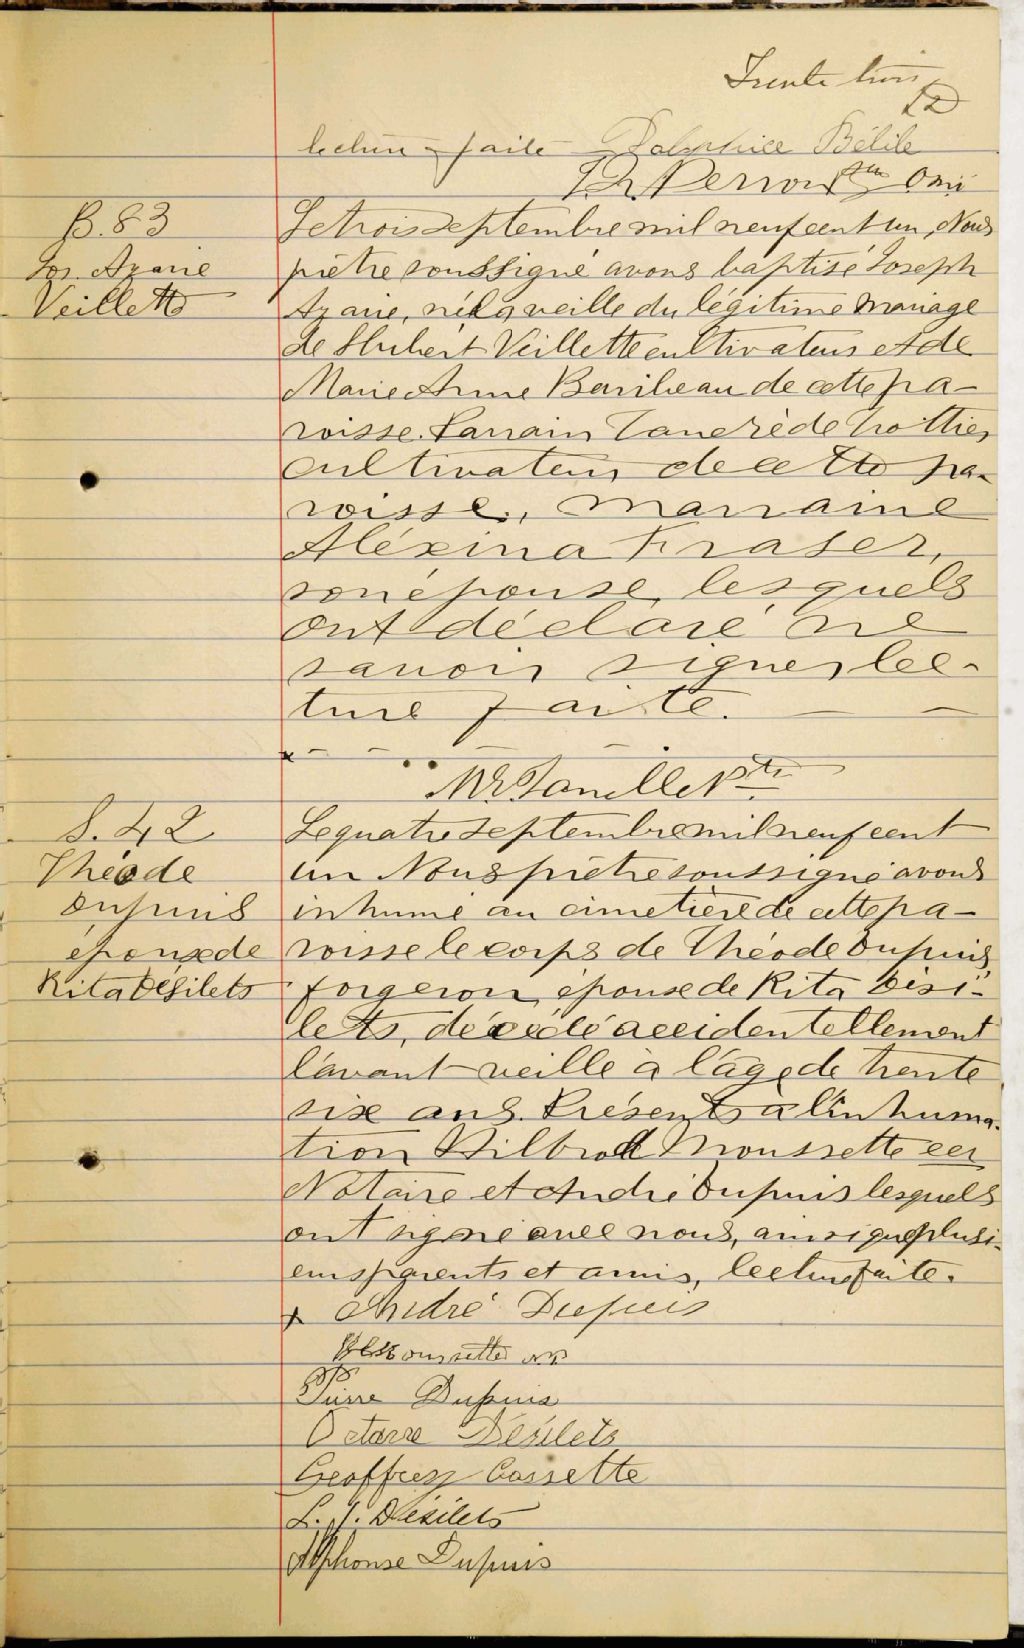 Trente trois
lecture faite Dolphice Bélile
Perron ptre Omi
B. 83
Jos. Azarie
Veillette
Le trois septembre mil neuf cent un, Nous
prêtre soussigné avons baptisé Joseph
Azarie, né la veille du légitime mariage
de Hubert Veillette cultivateur et de
Marie Anne Baribeau de cette pa-
roisse. Parrain Tancrède Trottier
cultivateur de cette pa-
roisse, marraine
Aléxina Fraser,
son épouse, lesquels
ont déclaré ne
savoir signer, lec-
ture faite.
Ptre
S. 42
Théode
Dupuis
époux de
Rita Désilets
Le quatre septembre mil neuf cent
un Nous prêtre soussigné avons
inhumé au cimetière de cette pa-
roisse le corps de Théode Dupuis,
forgeron, époux de Rita Dési-
lets, décédé accidentellement
l'avant-veille à l'âge de trente
six ans. Présents à l'inhuma-
tion Wilbrod Moussette ecr
Notaire et André Dupuis lesquels
ont signé avec nous, ainsi que plusi-
eurs parents et amis, lecture faite.
x André Dupuis
Moussette N.P.
Pierre Dupuis
Octave Désilets
Geoffrey Cossette
L. J. Désilets
Alphonse Dupuis